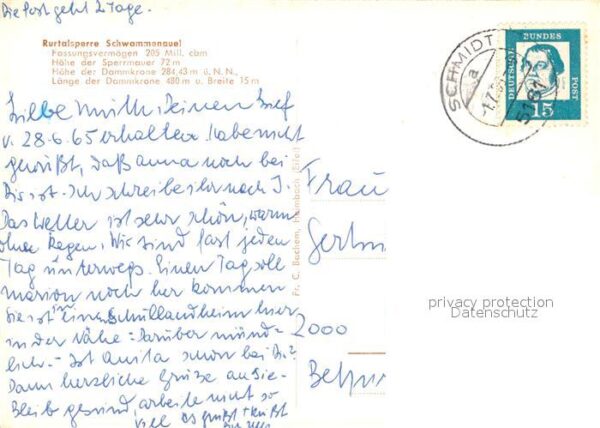 Die Post geht 2 Tage.
Rurtalsperre Schwammenauel
Fassungsvermögen 205 Mill. cbm
Höhe der Sperrmauer 72 m
Höhe der Dammkrone 284,43 m ü. N. N.,
Länge der Dammkrone 480 m u. Breite 15 m
Liebe Mutti Deinen Brief
v. 28.6.65 erhalten habe nicht
gewußt, daß Anna noch bei
Dir ist. Ich schreibe ihr nach I.
Das Wetter ist sehr schön, warm
ohne Regen, Wir sind fast jeden
Tag unterwegs. Einen Tag soll
Marion noch her kommen
Sie ist in einen Schullandheim hier
in der Nähe = Darüber münd=
lich. = Ist Anita schon bei Dir?
Dann herzliche Grüße an Sie=
Bleib gesund, arbeite nicht so
viel es grüßt + küßt
Fr. C. Bachem, Heimbach (Eifel)
SCHMIDT
a
5161
DEUTSCHE
BUNDES
POST
15
Frau
2000
privacy protection
Datenschutz